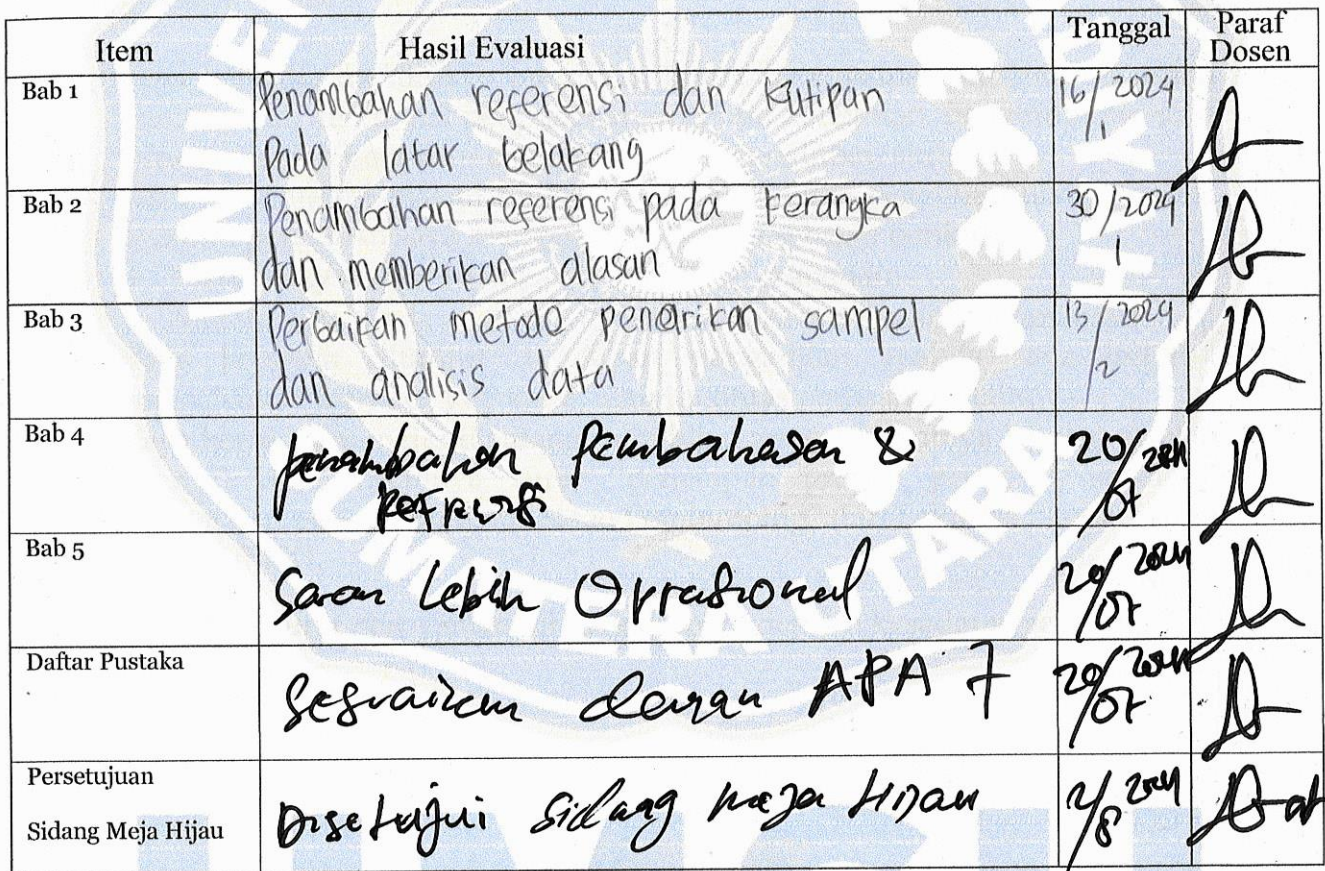 Item Hasil Evaluasi Tanggal Paraf Dosen
Bab 1 Penambahan referensi dan kutipan 16/1 2024
Pada latar belakang
Bab 2 Penambahan referensi pada kerangka 30/1 2024
dan memberikan alasan
Bab 3 Perbaikan metode penarikan sampel 13/2 2024
dan analisis data
Bab 4 penambahan Pembahasan & 20/07 2024
Referensi
Bab 5 Saran Lebih Oprasional 20/07 2024
Daftar Pustaka Sesuaikan dengan APA 7 20/07 2024
Persetujuan
Sidang Meja Hijau Disetujui Sidang meja Hijau 2/8 2024
UNIVE
SUMATERA UTARA